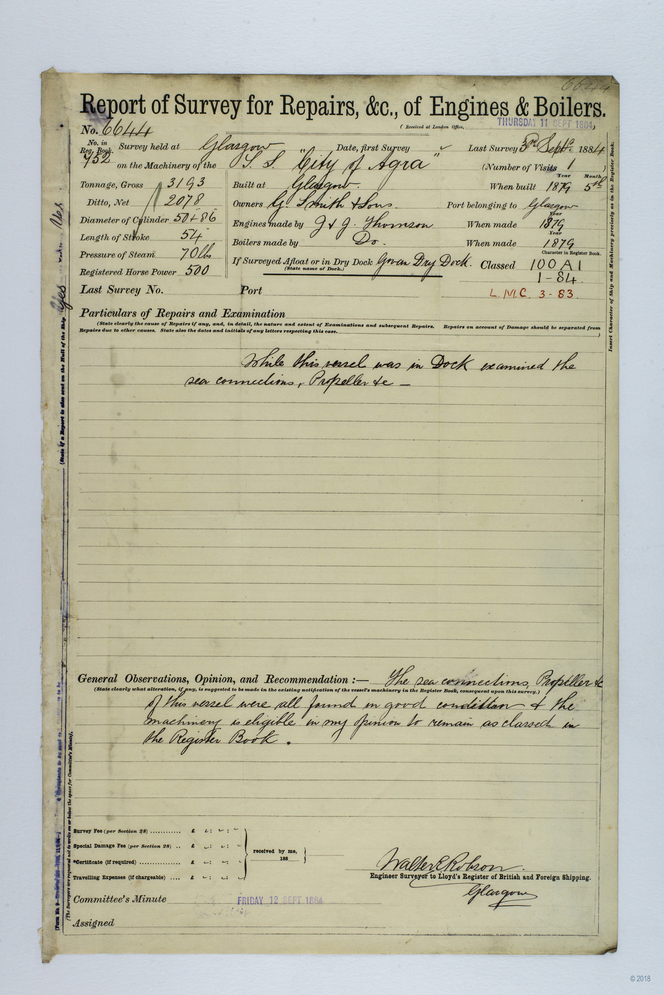 6644
Report of Survey for Repairs, &c., of Engines & Boilers.
(Received at London Office, THURSDAY 11 SEPT 1884)
No. 6644
No. in Reg. Book. Survey held at Glasgow Date, first Survey " Last Survey 3rd Sept 1884
952 on the Machinery of the S.S. "City of Agra" (Number of Visits 1)
Tonnage, Gross 3193 Built at Glasgow. When built Year 1879 Month 5th
Ditto, Net 2078 Owners G. Smith & Sons. Port belonging to Glasgow
Diameter of Cylinder 50 + 86 Engines made by J & G. Thomson When made Year 1879
Length of Stroke 54 Boilers made by Do. When made Year 1879
Pressure of Steam 70 lb If Surveyed Afloat or in Dry Dock Govan Dry Dock. Classed Character in Register Book. 100 A1
(State name of Dock.)
Registered Horse Power 500 1-84.
Last Survey No. Port L.M.C. 3-83.
Particulars of Repairs and Examination
(State clearly the cause of Repairs if any, and, in detail, the nature and extent of Examinations and subsequent Repairs. Repairs on account of Damage should be separated from
Repairs due to other causes. State also the dates and initials of any letters respecting this case.)
While this vessel was in Dock examined the
sea connections, Propeller &c —
General Observations, Opinion, and Recommendation :— The sea connections, Propeller &c
(State clearly what alteration, if any, is suggested to be made in the existing notification of the vessel's machinery in the Register Book, consequent upon this survey.)
of this vessel were all found in good condition & the
machinery is eligible in my opinion to remain as classed in
the Register Book.
Survey Fee (per Section 28) ........... £ : :
Special Damage Fee (per Section 28) .. £ : :
*Certificate (if required) .............. £ : :
Travelling Expenses (if chargeable) .... £ : :
received by me,
188
Walter E Robson.
Engineer Surveyor to Lloyd's Register of British and Foreign Shipping.
Glasgow
Committee's Minute FRIDAY 12 SEPT 1884
Assigned
Insert Character of Ship and Machinery precisely as in the Register Book.
(State if a Report is also sent on the Hull of the Ship Yes
© 2018